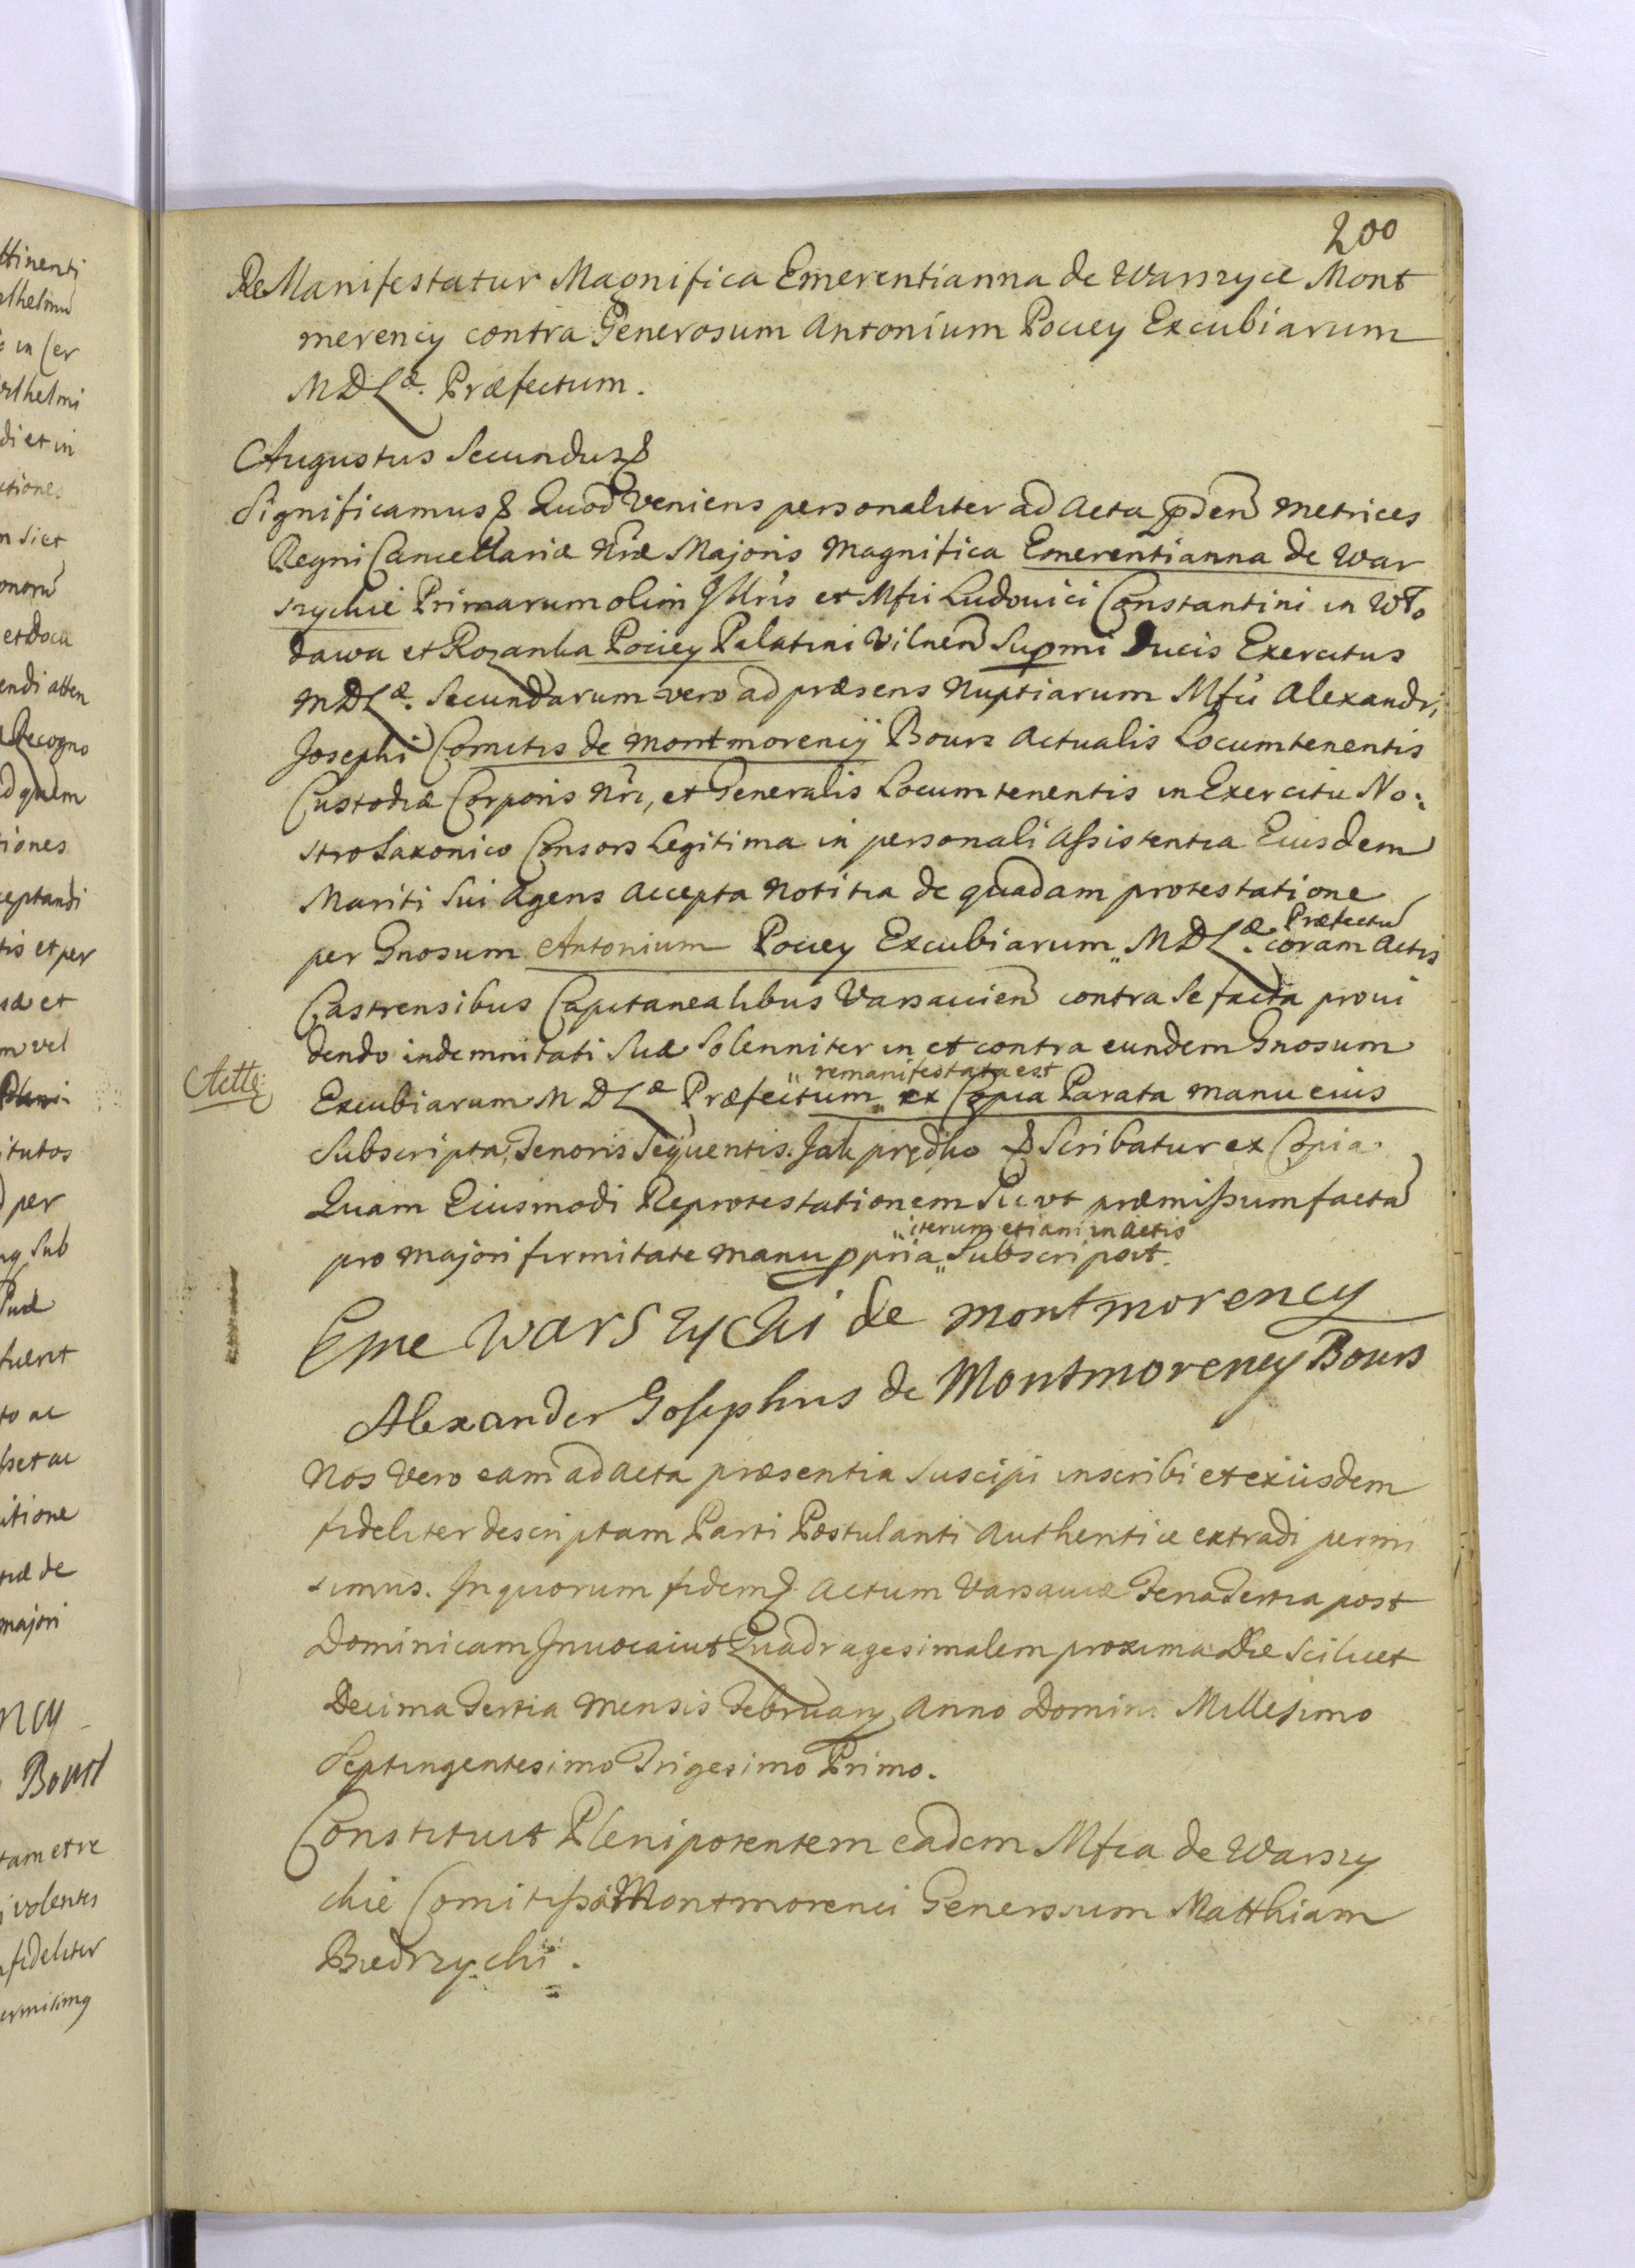 200
ReManifestatur Magnifica Emerentianna de Warszyce Mont
merency contra Generosum Antonium Pociey Excubiarum
MDLæ. Præfectum.
Augustus Secundus &
Significamus & Quod Veniens personaliter ad Acta p̄den Metrices
Regni Cancellariæ Nr̃æ Majoris Magnifica Emerentianna de War
szyckie Primarum olim Jllris et Mfci Ludovici Constantini in Wło
dawa et Rozanka Pociey Palatini Vilnen Supmi Ducis Exercitus
MDLæ. Secundarum vero ad præsens Nuptiarum Mfci Alexandri
Josephi Comitis de Montmorency Bours Actualis Locumtenentis
Custodiæ Corporis Nri, et Generalis Locumtenentis in Exercitu No:
stro Saxonico Consors Legitima in personali Assistentia Eiusdem
Mariti Sui Agens Accepta Notitia de quadam protestatione
per Gnosum Antonium Pociey Excubiarum „ MDLæ. Præfectū coram Actis
Castrensibus Capitanealibus Varsavien contra se facta provi
dendo indemnitati Suæ Solenniter in et contra eundem Gnosum
Actt:
Excubiarum MDLæ Præfectum „ remanifestata est ex Copia Parata manu eius
Subscripta, Tenoris Sequentis. Jak prędko & Scribatur ex Copia.
Quam Eiusmodi Reprotestationem Sic ut præmissum facta
pro majori firmitate manu ppria „ iterum etiam in Actis Subscripsit.
Eme Warszycki de Montmorency
Alexander Josephus de Montmorency Bours
Nos Vero eam ad Acta præsentia Suscipi inscribi et exiisdem
fideliter descriptam Parti Postulanti Authentice extradi permi
simus. Jn quorum fidem & Actum Varsaviæ Feria Tertia post
Dominicam Jnvocavit Quadragesimalem proxima Die Scilicet
Decima Tertia Mensis February Anno Domini Millesimo
Septingentesimo Trigesimo Primo.
Constituit Plenipotentem eadem Mfca de Warszy
ckie Comitissa Montmorenci Generosum Matthiam
Biedrzycki.